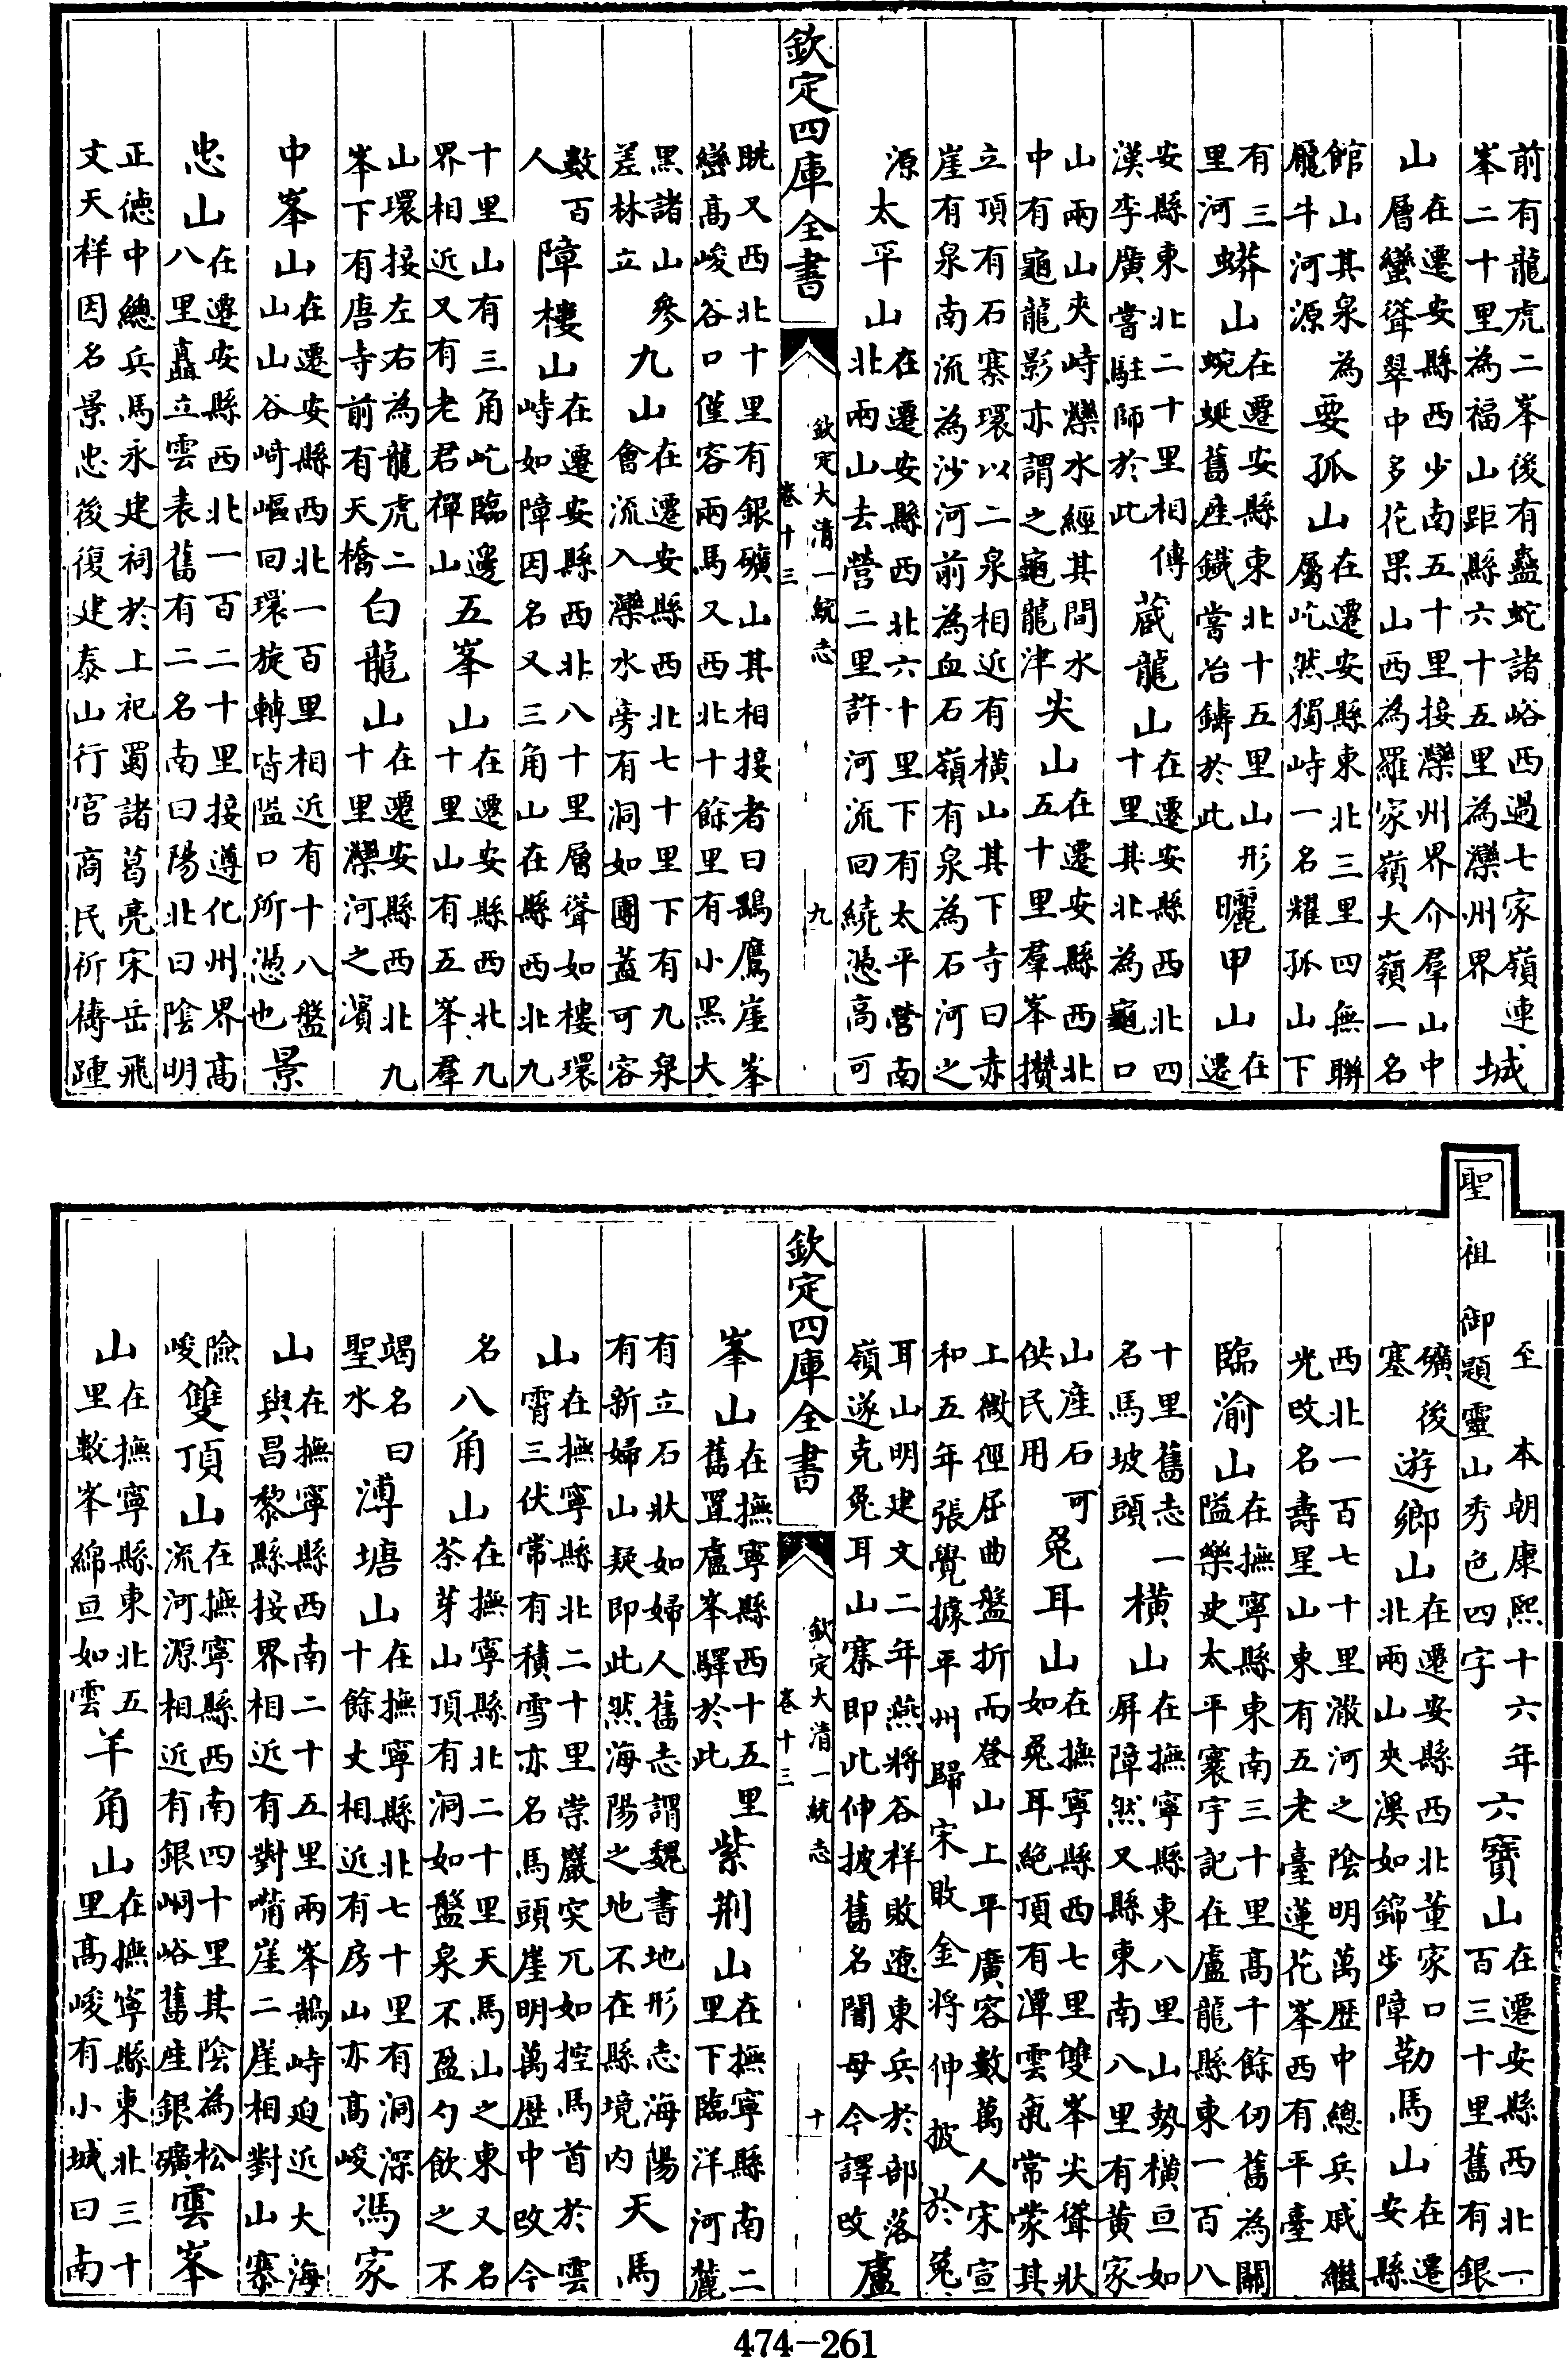 前有龍虎二峯後有蠱蛇諸峪西過七家嶺連
峯二十里為福山距縣六十五里為灤州界
城
山
在遷安縣西少南五十里接灤州界介羣山中
層巒聳翠中多花果山西為羅家嶺大嶺一名
館山其泉為
龎牛河源
要孤山
在遷安縣東北三里四無聯
屬屹然獨峙一名耀孤山下
有三
里河
蟒山
在遷安縣東北十五里山形
蜿蜒舊產鐵嘗冶鑄於此
曬甲山
在
遷
安縣東北二十里相傳
漢李廣嘗駐師於此
藏龍山
在遷安縣西北四
十里其北為龜口
山兩山夾峙灤水經其間水
中有龜龍影亦謂之龜龍津
尖山
在遷安縣西北
五十里羣峯攢
立頂有石寨環以二泉相近有橫山其下寺曰赤
崖有泉南流為沙河前為血石嶺有泉為石河之
源
太平山
在遷安縣西北六十里下有太平營南
北兩山去營二里許河流回繞憑高可
欽定四庫全書
欽定大清一統志
卷十三
九
眺又西北十里有銀礦山其相接者曰鷂鷹崖峯
巒高峻谷口僅容兩馬又西北十餘里有小黑大
黑諸山參
差林立
九山
在遷安縣西北七十里下有九泉
會流入灤水旁有洞如團蓋可容
數百
人
障樓山
在遷安縣西北八十里層聳如樓環
峙如障因名又三角山在縣西北九
十里山有三角屹臨邊
界相近又有老君禪山
五峯山
在遷安縣西北九
十里山有五峯羣
山環接左右為龍虎二
峯下有唐寺前有天橋
白龍山
在遷安縣西北九
十里灤河之濱
中峯山
在遷安縣西北一百里相近有十八盤
山山谷崎嶇回環旋轉皆隘口所憑也
景
忠山
在遷安縣西北一百二十里接遵化州界高
八里矗立雲表舊有二名南曰陽北曰陰明
正德中總兵馬永建祠於上祀蜀諸葛亮宋岳飛
文天祥因名景忠後復建泰山行宫商民祈禱踵
至本朝康熙十六年
聖祖御題靈山秀色四字
六寶山
在遷安縣西北一
百三十里舊有銀
礦後
塞
遊鄉山
在遷安縣西北董家口
北兩山夾溪如錦步障
勒馬山
在遷
安縣
西北一百七十里潵河之陰明萬歷中總兵戚繼
光改名壽星山東有五老臺蓮花峯西有平臺
臨渝山
在撫寧縣東南三十里高千餘仞舊為關
隘樂史太平寰宇記在盧龍縣東一百八
十里舊志一
名馬坡頭
橫山
在撫寧縣東八里山勢橫亘如
屏障然又縣東南八里有黄家
山產石可
供民用
兔耳山
在撫寧縣西七里雙峯尖聳狀
如兔耳絶頂有潭雲氣常蒙其
上微徑屈曲盤折而登山上平廣容數萬人宋宣
和五年張覺據平州歸宋敗金將仲披於兔
耳山明建文二年燕將谷祥敗遼東兵於部落
嶺遂克兔耳山寨即此仲披舊名闍母今譯改
盧
欽定四庫全書
欽定大清一統志
卷十三
十
峯山
在撫寧縣西十五里
舊置盧峯驛於此
紫荆山
在撫寧縣南二
里下臨洋河麓
有立石狀如婦人舊志謂魏書地形志海陽
有新婦山疑即此然海陽之地不在縣境内
天馬
山
在撫寧縣北二十里崇巖突兀如控馬首於雲
霄三伏常有積雪亦名馬頭崖明萬歷中改今
名
八角山
在撫寧縣北二十里天馬山之東又名
茶芽山頂有洞如盤泉不盈勺飲之不
竭名曰
聖水
溥塘山
在撫寧縣北七十里有洞深
十餘丈相近有房山亦高峻
馮家
山
在撫寧縣西南二十五里兩峯鵲峙迫近大海
與昌黎縣接界相近有對嘴崖二崖相對山寨
險
峻
雙頂山
在撫寧縣西南四十里其陰為松
流河源相近有銀峒峪舊產銀礦
雲峯
山
在撫寧縣東北五
里數峯綿亘如雲
羊角山
在撫寧縣東北三十
里高峻有小城曰南
474-261